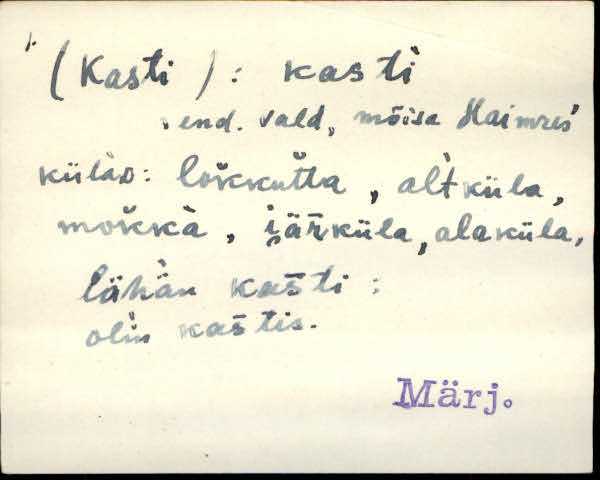 (Kasti): kas̀ti
end. vald, mõisa Haimres
külad: lok̆kut̆ta, alt̀küla,
mok̆kà, i̯är̄küla, alaküla,
lähän kas̄ti:
olìn kas̄tis.
Märj.